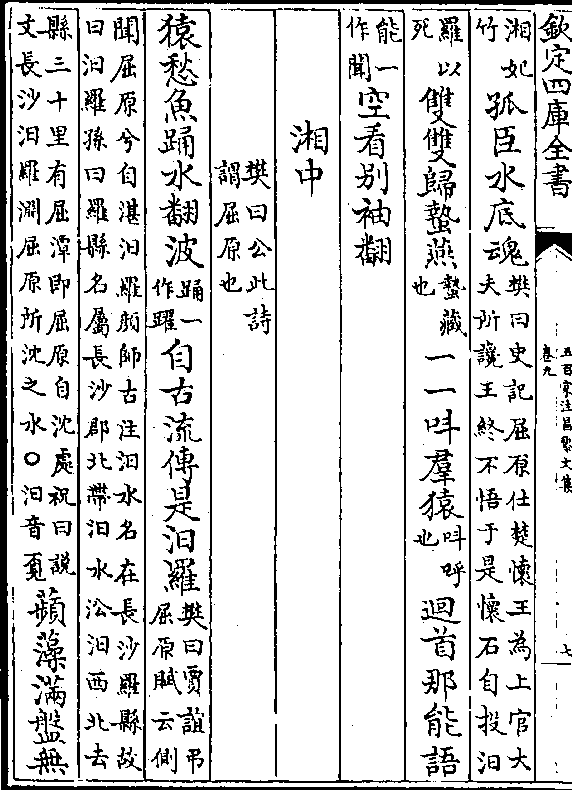 欽定四庫全書
五百家注昌黎文集
卷九
七
湘妃
竹
孤臣水底魂
樊曰史記屈原仕楚懷王為上官大
夫所讒王終不悟于是懷石自投汨
羅以
死
雙雙歸蟄燕
蟄藏
也
一一叫羣猿
叫呼
也
迴首那能語
能一
作聞
空看別袖翻
湘中
樊曰公此詩
謂屈原也
猿愁魚踊水翻波
踊一
作躍
自古流傳是汨羅
樊曰賈誼弔
屈原賦云側
聞屈原兮自湛汨羅顔師古注汨水名在長沙羅縣故
曰汨羅孫曰羅縣名屬長沙郡北帶汨水㳂汨西北去
縣三十里有屈潭即屈原自沈處祝曰說
文長沙汨羅淵屈原所沈之水○汨音覔
蘋藻滿盤無